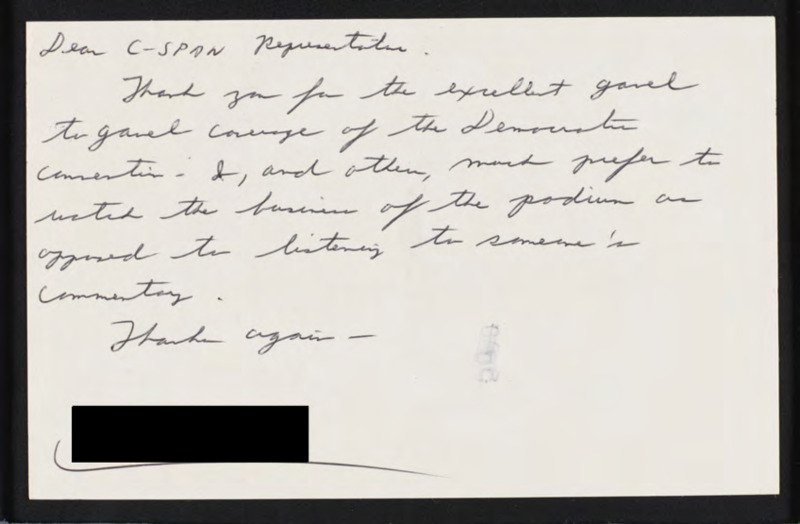 Dear C-SPAN Representative.
Thank you for the excellent gavel
to gavel coverage of the Democratic
convention - I, and others, much prefer to
watch the business of the podium as
opposed to listening to someone's
commentary.
Thanks again —